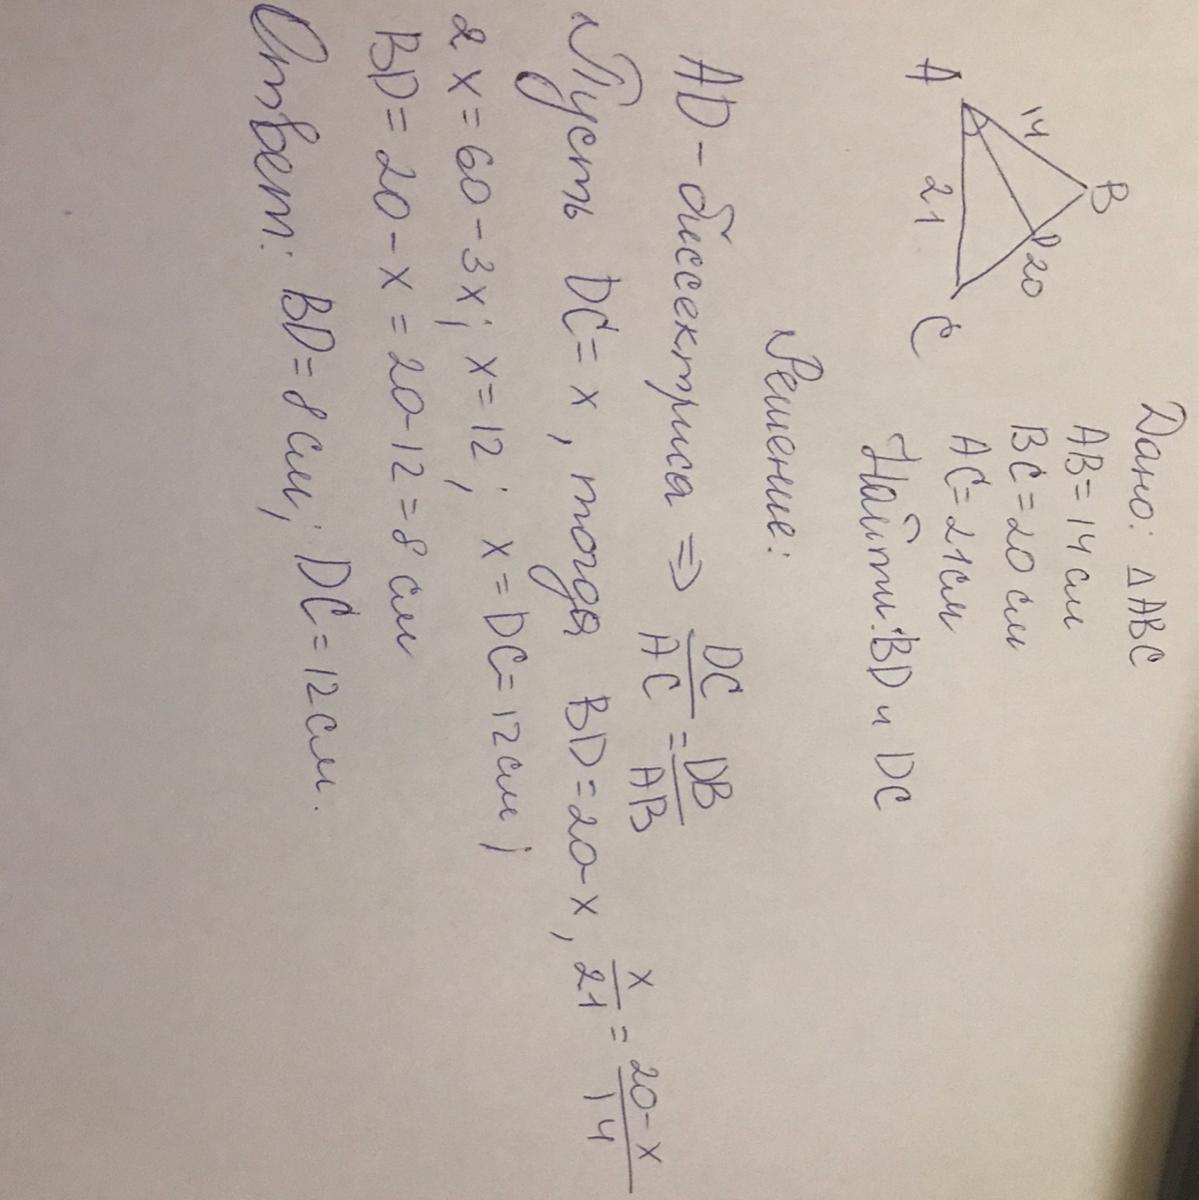 Дано: △ABC
AB=14см
BC=20см
AC=21см
Найти: BD и DC
B
14
D
20
A
21
C
Решение:
AD-биссектриса ⇒ DC/AC = DB/AB
Пусть DC=x, тогда BD=20-x, x/21 = 20-x/14
2x=60-3x; x=12; x=DC=12см;
BD=20-x=20-12=8см
Ответ: BD=8см; DC=12см.